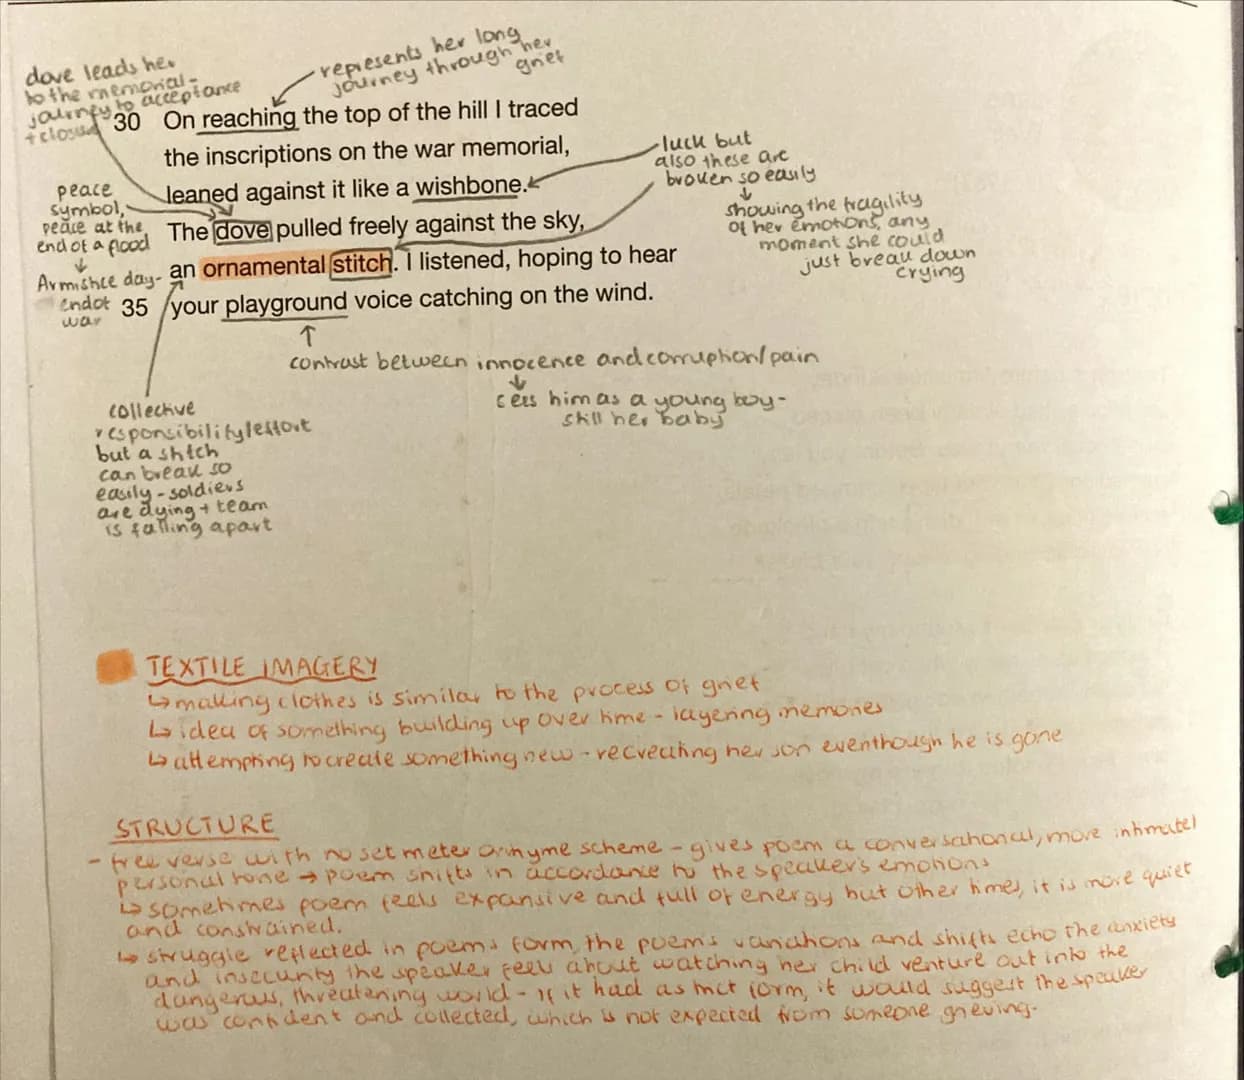 dove leads her
to the memorial-
journey to acceptance
+closure
represents her long
journey through her
grief
30 On reaching the top of the hill I traced
the inscriptions on the war memorial,
leaned against it like a wishbone.
The dove pulled freely against the sky,
an ornamental stitch. I listened, hoping to hear
35 your playground voice catching on the wind.
luck but
also these are
broken so easily
↓
showing the fragility
of her emotions, any
moment she could
just break down
crying
peace
symbol,
peace at the
end of a flood
↓
Armistice day-
end of
war
contrast between innocence and corruption/pain
↓
sees him as a young boy-
still her baby
collective
responsibility/effort
but a stitch
can break so
easily - soldiers
are dying + team
is falling apart
TEXTILE IMAGERY
↳ making clothes is similar to the process of grief
↳ idea of something building up over time - layering memories
↳ attempting to create something new - recreating her son eventhough he is gone
STRUCTURE
- free verse with no set meter or rhyme scheme - gives poem a conversational, more intimate/
personal tone → poem shifts in accordance to the speaker's emotions
↳ sometimes poem feels expansive and full of energy but other times, it is more quiet
and constrained.
↳ struggle reflected in poems form, the poem's variations and shifts echo the anxiety
and insecurity the speaker feels about watching her child venture out into the
dangerous, threatening world - if it had a strict form, it would suggest the speaker
was confident and collected, which is not expected from someone grieving.